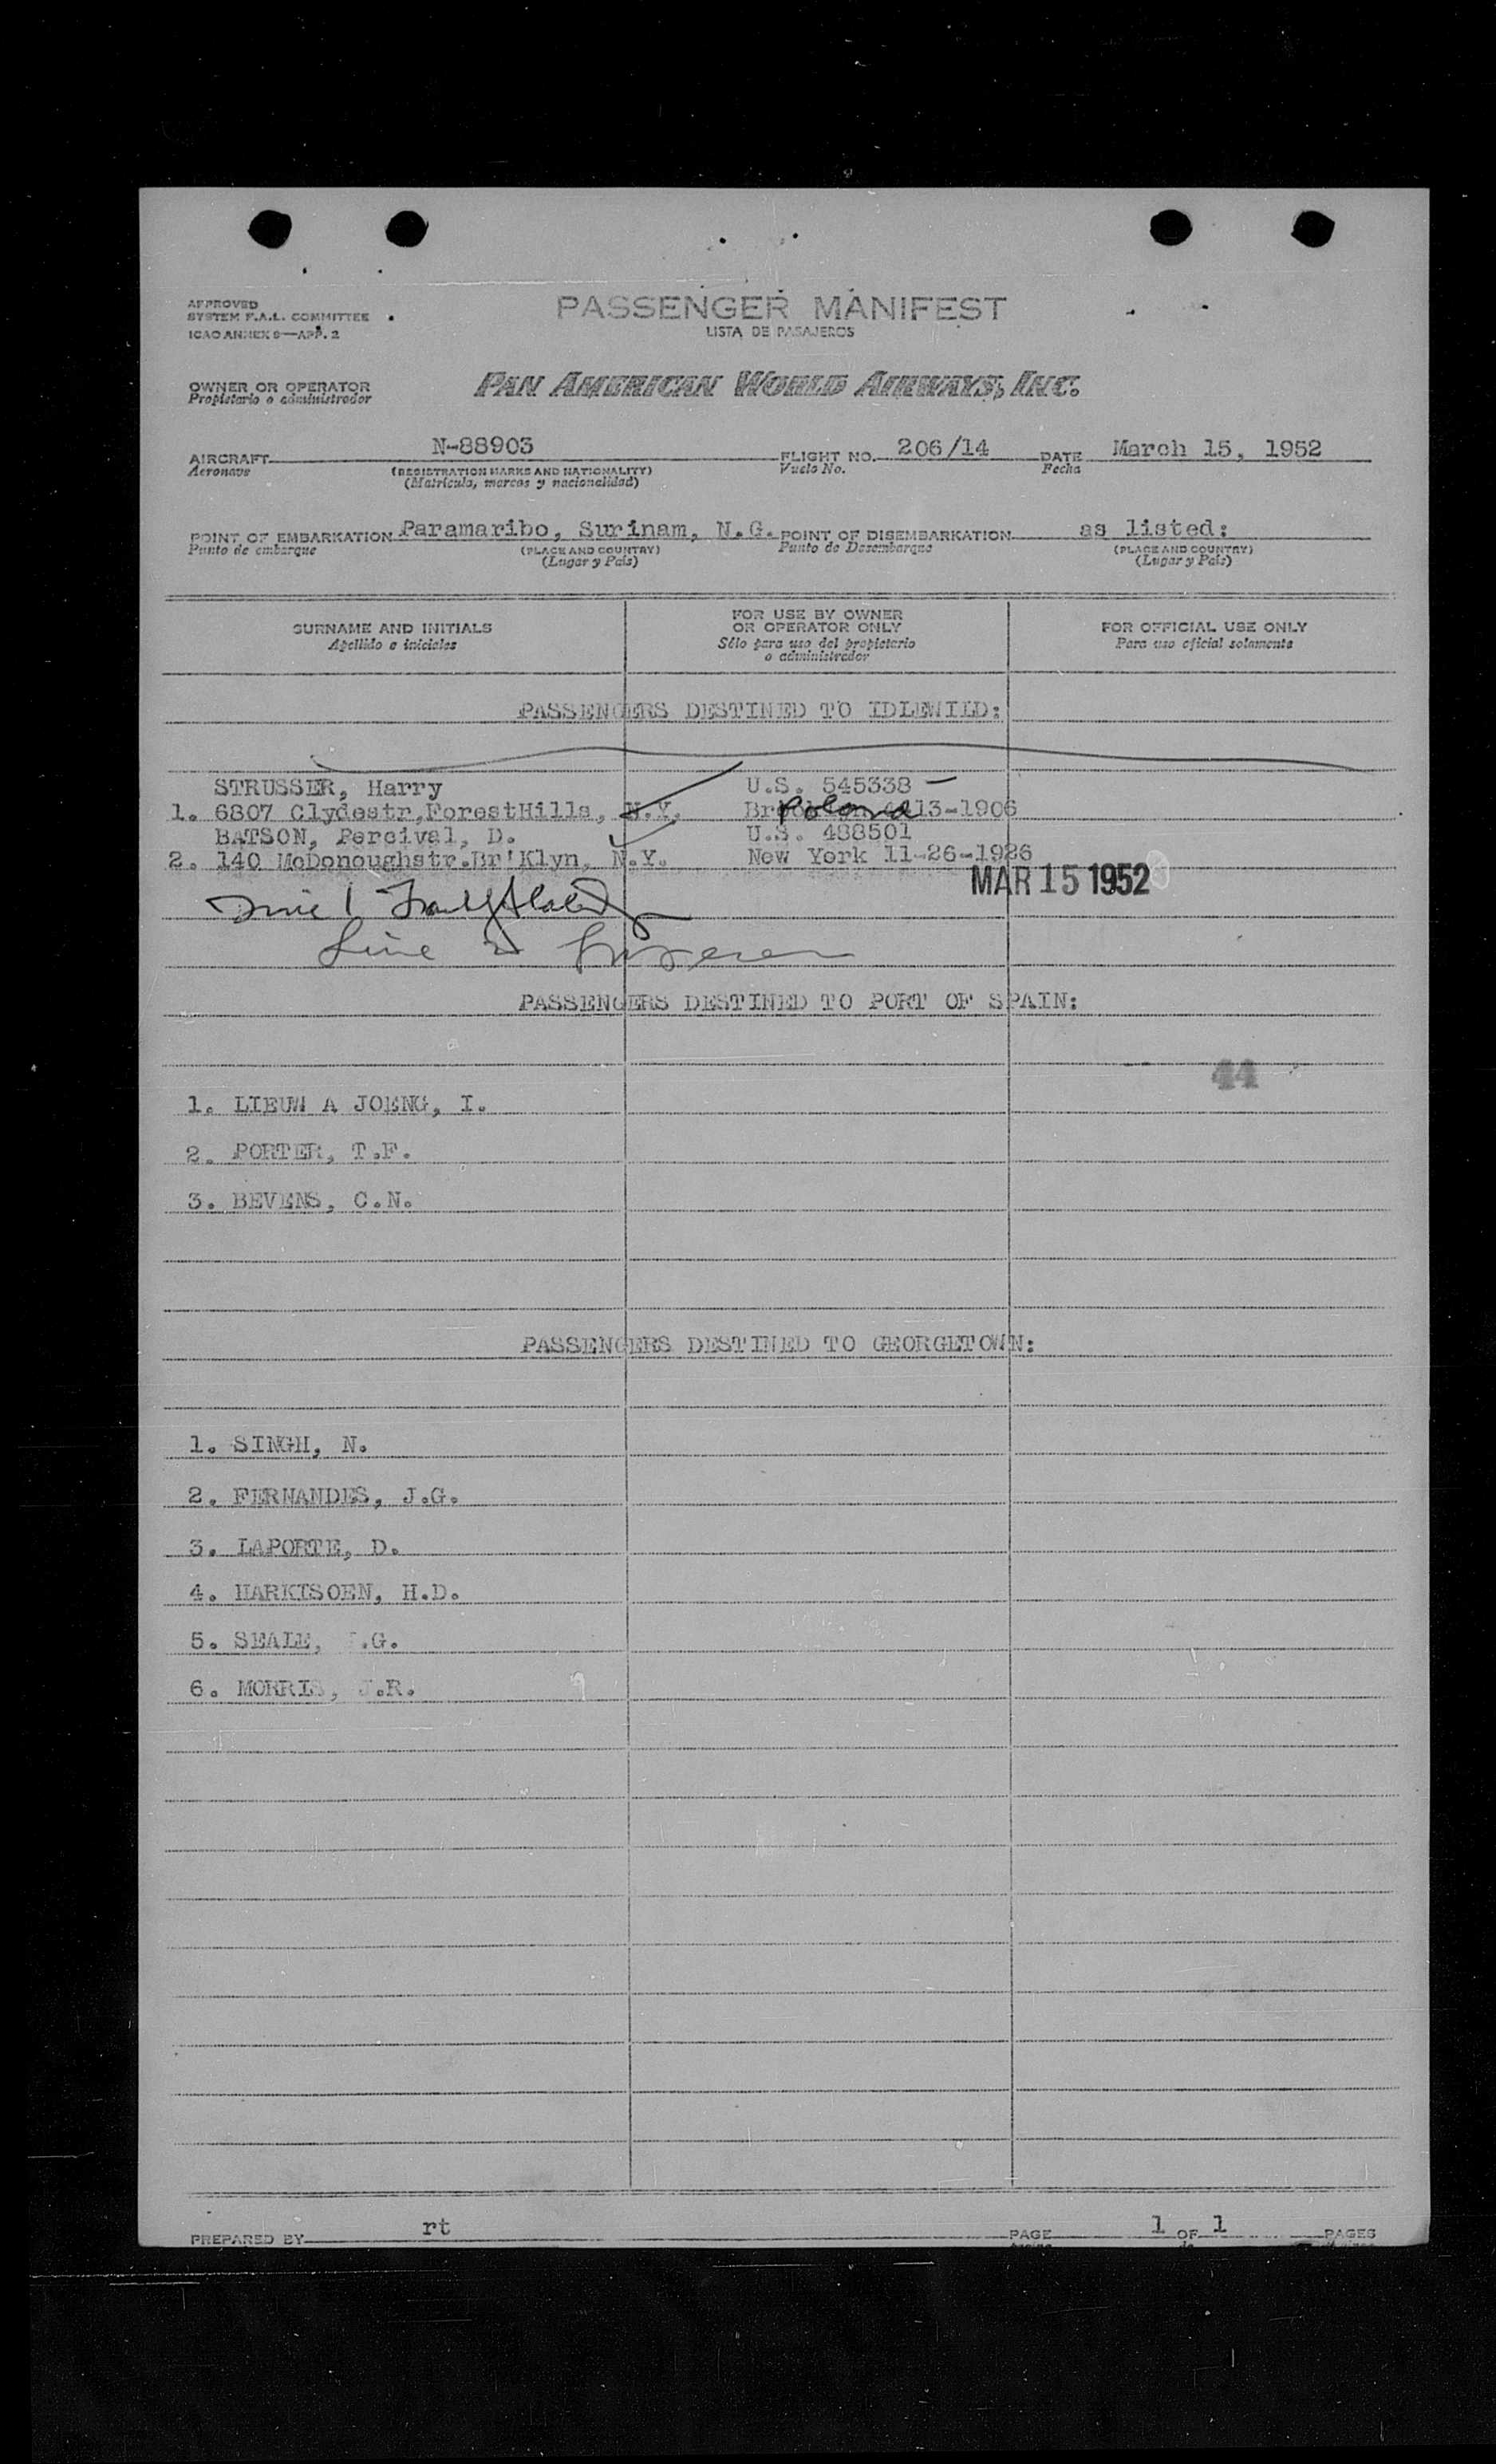 APPROVED
SYSTEM F.A.L. COMMITTEE
ICAO ANNEX 9—APP. 2
PASSENGER MANIFEST
LISTA DE PASAJEROS
OWNER OR OPERATOR
Propietario o administrador
PAN AMERICAN WORLD AIRWAYS, INC.
AIRCRAFT N-88903 FLIGHT NO. 206/14 DATE March 15, 1952
Aeronave (REGISTRATION MARKS AND NATIONALITY) Vuelo No. Fecha
(Matrícula, marcas y nacionalidad)
POINT OF EMBARKATION Paramaribo, Surinam, N.G. POINT OF DISEMBARKATION as listed:
Punto de embarque (PLACE AND COUNTRY) Punto de Desembarque (PLACE AND COUNTRY)
(Lugar y País) (Lugar y País)
SURNAME AND INITIALS
Apellido e iniciales
FOR USE BY OWNER
OR OPERATOR ONLY
Sólo para uso del propietario
o administrador
FOR OFFICIAL USE ONLY
Para uso oficial solamente
PASSENGERS DESTINED TO IDLEWILD:
STRUSSER, Harry U.S. 545338
1. 6807 Clydestr,ForestHills, N.Y. Poland 13-1906
BATSON, Percival, D. U.S. 488501
2. 140 McDonoughstr.Br'Klyn, N.Y. New York 11-26-1926
MAR 15 1952
Line 2
PASSENGERS DESTINED TO PORT OF SPAIN:
44
1. LIEUW A JOENG, I.
2. PORTER, T.F.
3. BEVENS, C.N.
PASSENGERS DESTINED TO GEORGETOWN:
1. SINGH, N.
2. FERNANDES, J.G.
3. LAPORTE, D.
4. HARKISOEN, H.D.
5. SEALE, .G.
6. MORRIS, J.R.
PREPARED BY rt PAGE 1 OF 1 PAGES